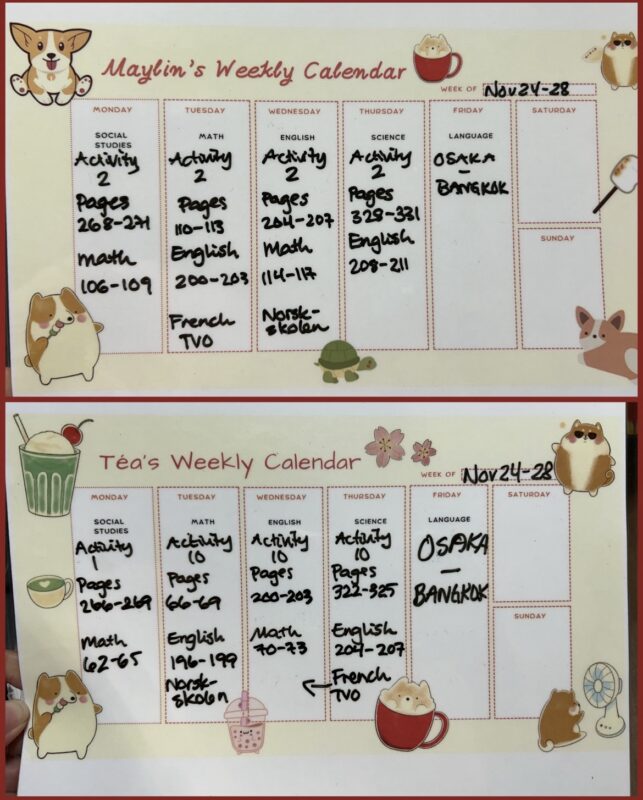 Maylin's Weekly Calendar
WEEK OF Nov 24-28
MONDAY
SOCIAL
STUDIES
Activity
2
Pages
268-271
Math
106-109
TUESDAY
MATH
Activity
2
Pages
110-113
English
200-203
French
TVO
WEDNESDAY
ENGLISH
Activity
2
Pages
204-207
Math
114-117
Norsk-
skolen
THURSDAY
SCIENCE
Activity
2
Pages
328-331
English
208-211
FRIDAY
LANGUAGE
OSAKA
–
BANGKOK
SATURDAY
SUNDAY
Téa's Weekly Calendar
WEEK OF Nov 24-28
MONDAY
SOCIAL
STUDIES
Activity
1
Pages
266-269
Math
62-65
TUESDAY
MATH
Activity
10
Pages
66-69
English
196-199
Norsk-
skolen
WEDNESDAY
ENGLISH
Activity
10
Pages
200-203
Math
70-73
THURSDAY
SCIENCE
Activity
10
Pages
322-325
English
204-207
French
TVO
FRIDAY
LANGUAGE
OSAKA
–
BANGKOK
SATURDAY
SUNDAY